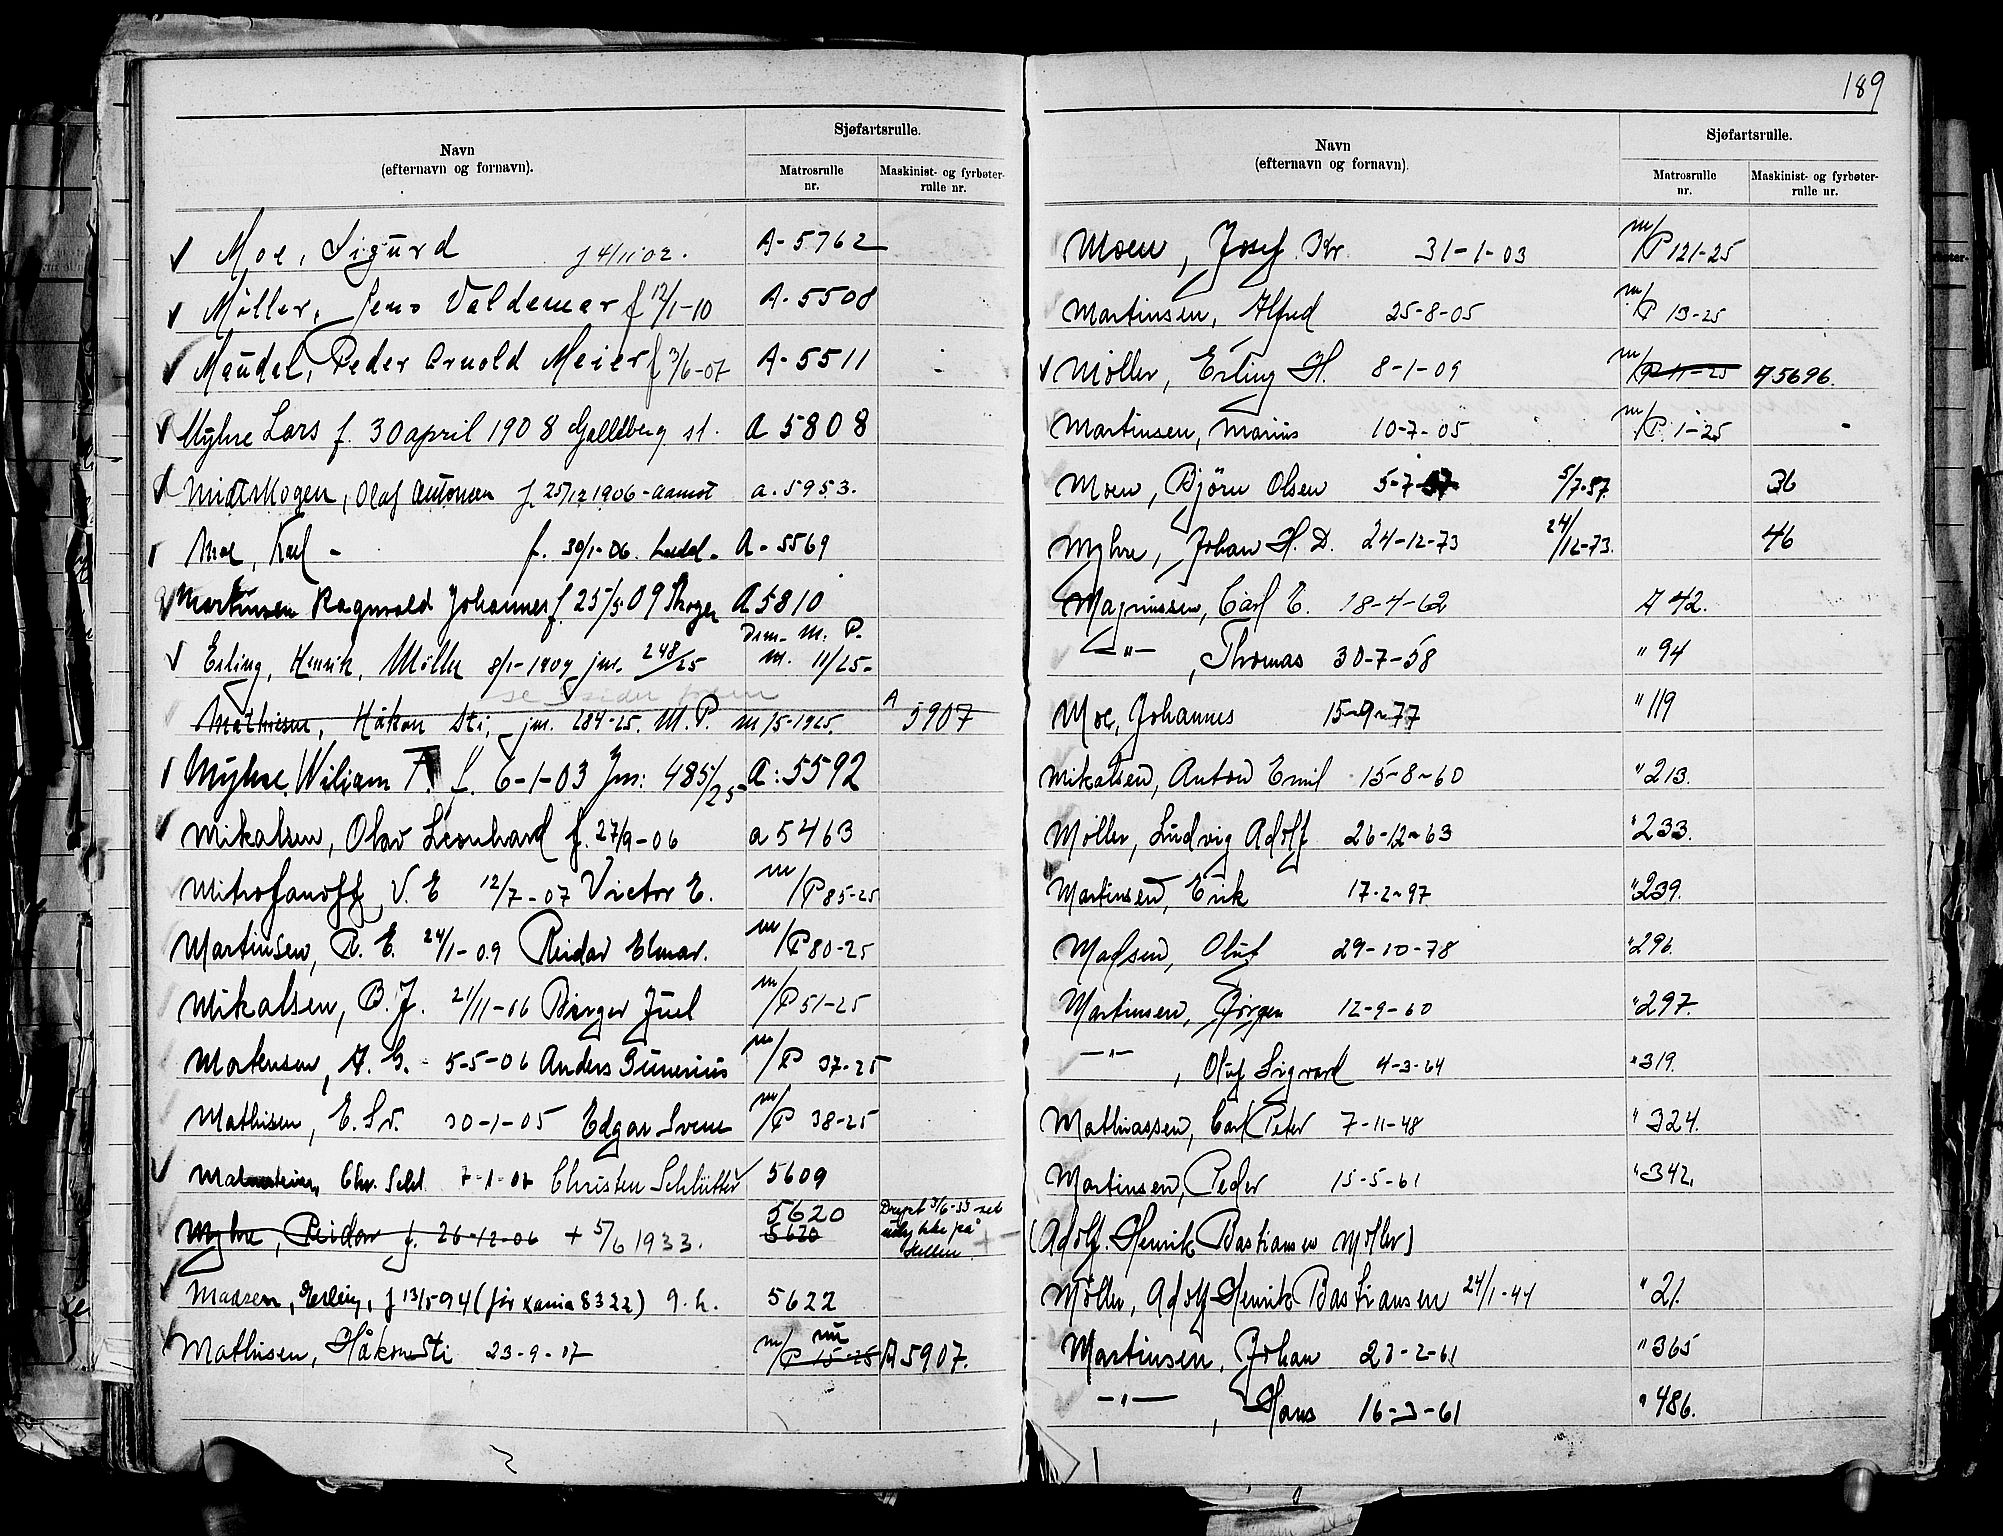 189
Navn
(efternavn og fornavn).
Sjøfartsrulle.
Matrosrulle nr.
Maskinist- og fyrbøter-rulle nr.
Moe, Sigurd f 4/11 02. A- 5762
Møller, Jens Valdemar f 12/1-10 A- 5508
Maudel, Peder Arnold Meier f 3/6-07 A- 5511
Myhre Lars f. 30 april 1908 st. A 5808
Midtskogen, Olaf Antonsen f. 25/12 1906 - Aamot a. 5953.
Moe, Karl - f. 30/1-06. A- 5569
Martinsen Ragnvald Johannes f. 25/5 09 Skoger A 5810
Erling, Henrik, Møller 8/1-1909 jnr. 248/25 m. P. m. 11/25-
se 5 sider frem
Mathisen, Håkon Sti, jnr. 284-25. M.P. m 15-1925. A 5907
Myhre, Wiliam F. f. 6-1-03 Jnr: 485/25 A: 5592
Mikalsen, Olav Leonhard f. 27/9-06 a 5463
Mitrofanoff, V. E 12/7-07 Victor E. m/P 85-25
Martinsen, R. E. 24/1-09 Reidar Elmar. m/P 80-25
Mikalsen, B. J. 21/11-06 Birger Juel m/P 51-25
Mortensen, A. G. - 5-5-06 Anders Gunerius m/P 37-25
Mathisen, E. Sv. 30-1-05 Edgar Svene m/P 38-25
Chr. Schl. 7-1-07 Christen Schlütter 5609
Myhre, Reidar f. 26-12-06 + 5/6 1933. 5620 5620
Madsen, Erling, f 13/5 94 (før Xania 8322) g. h. 5622
Mathisen, Håkon Sti 23-9-07 m/P 15-25 nu A 5907.
Navn
(efternavn og fornavn).
Sjøfartsrulle.
Matrosrulle nr.
Maskinist- og fyrbøter-rulle nr.
Moen, Josef Kr. 31-1-03 m/P 121-25
Martinsen, Alfred 25-8-05 m/P 13-25
Møller, Erling H. 8-1-09 m/P 11-25 A 5696.
Martinsen, Marius 10-7-05 m/P. 1-25
Moen, Bjørn Olsen 5-7-87 5/7-87 36
Myhre, Johan H. D. 24-12-73 24/12-73. 46
Magnussen, Carl E. 18-4-62 A 42.
-"- , Thomas 30-7-58 " 94
Moe, Johannes 15-9-77 " 119
Mikalsen, Anton Emil 15-8-60 " 213.
Møller, Ludvig Adolf 26-12-63 " 233.
Martinsen, Erik 17-2-97 " 239.
Madsen, Oluf 29-10-78 " 296.
Martinsen, Jørgen 12-9-60 " 297.
-"- , Oluf Sigvard 4-3-64 " 319.
Mathiassen, Carl Peter 7-11-48 " 324.
Martinsen, Peder 15-5-61 " 342.
(Adolf. Henrik Bastiansen Møller)
Møller, Adolf Henrik Bastiansen 24/1-44 " 21.
Martinsen, Johan 23-2-61 " 365
-"- , Hans 16-3-61 " 486.